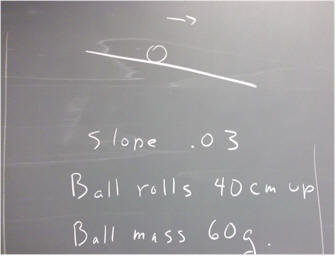 Slope .03
Ball rolls 40cm up
Ball mass 60g.